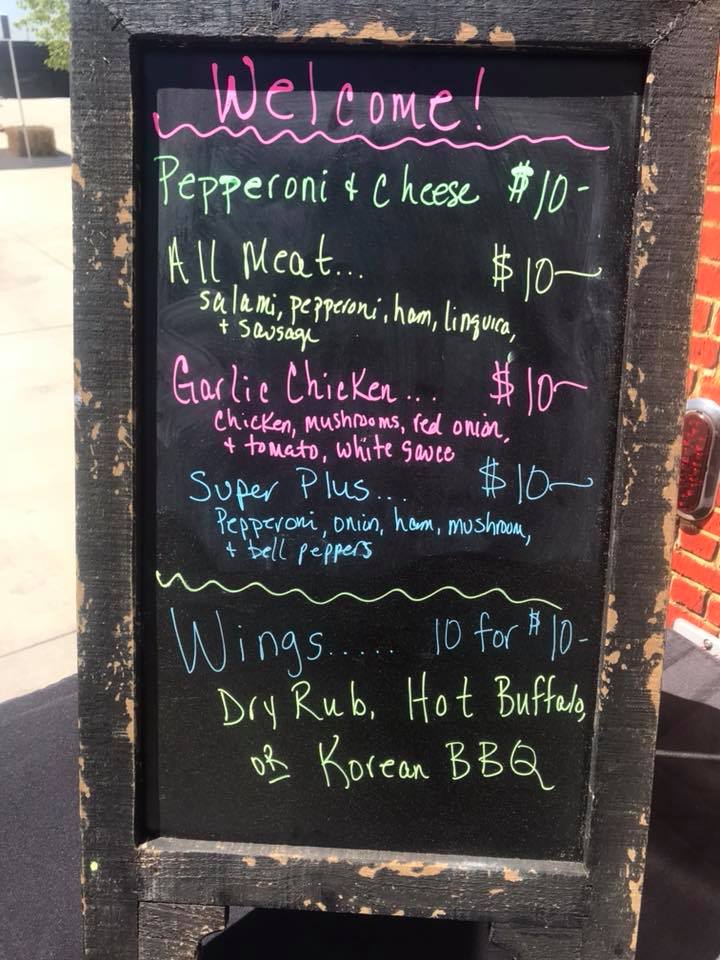 Welcome!
Pepperoni + Cheese $10-
All Meat... $10-
salami, pepperoni, ham, linguica,
+ sausage
Garlic Chicken... $10-
chicken, mushrooms, red onion,
+ tomato, white sauce
Super Plus... $10-
Pepperoni, onion, ham, mushroom,
+ bell peppers
Wings..... 10 for $10-
Dry Rub, Hot Buffalo,
OR Korean BBQ